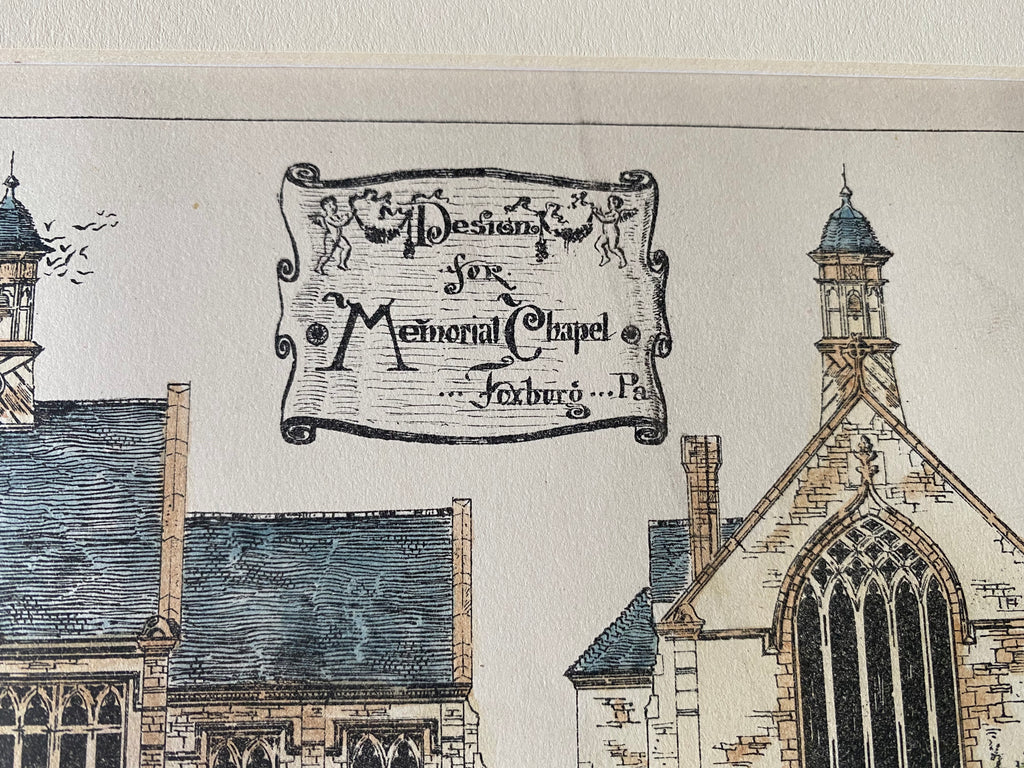 Design
for
Memorial Chapel
... Foxburg ... Pa